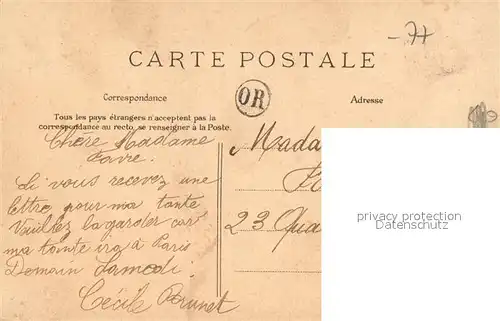 -77
CARTE POSTALE
Correspondance
OR
Adresse
Tous les pays étrangers n'acceptent pas la
correspondance au recto, se renseigner à la Poste.
Chère Madame
Favre.
Si vous recevez une
lettre pour ma tante
Vuillez la garder car
ma tainte ira à Paris
Demain Samedi.
Cécile Brunet
Mada
23 Qua
privacy protection
Datenschutz